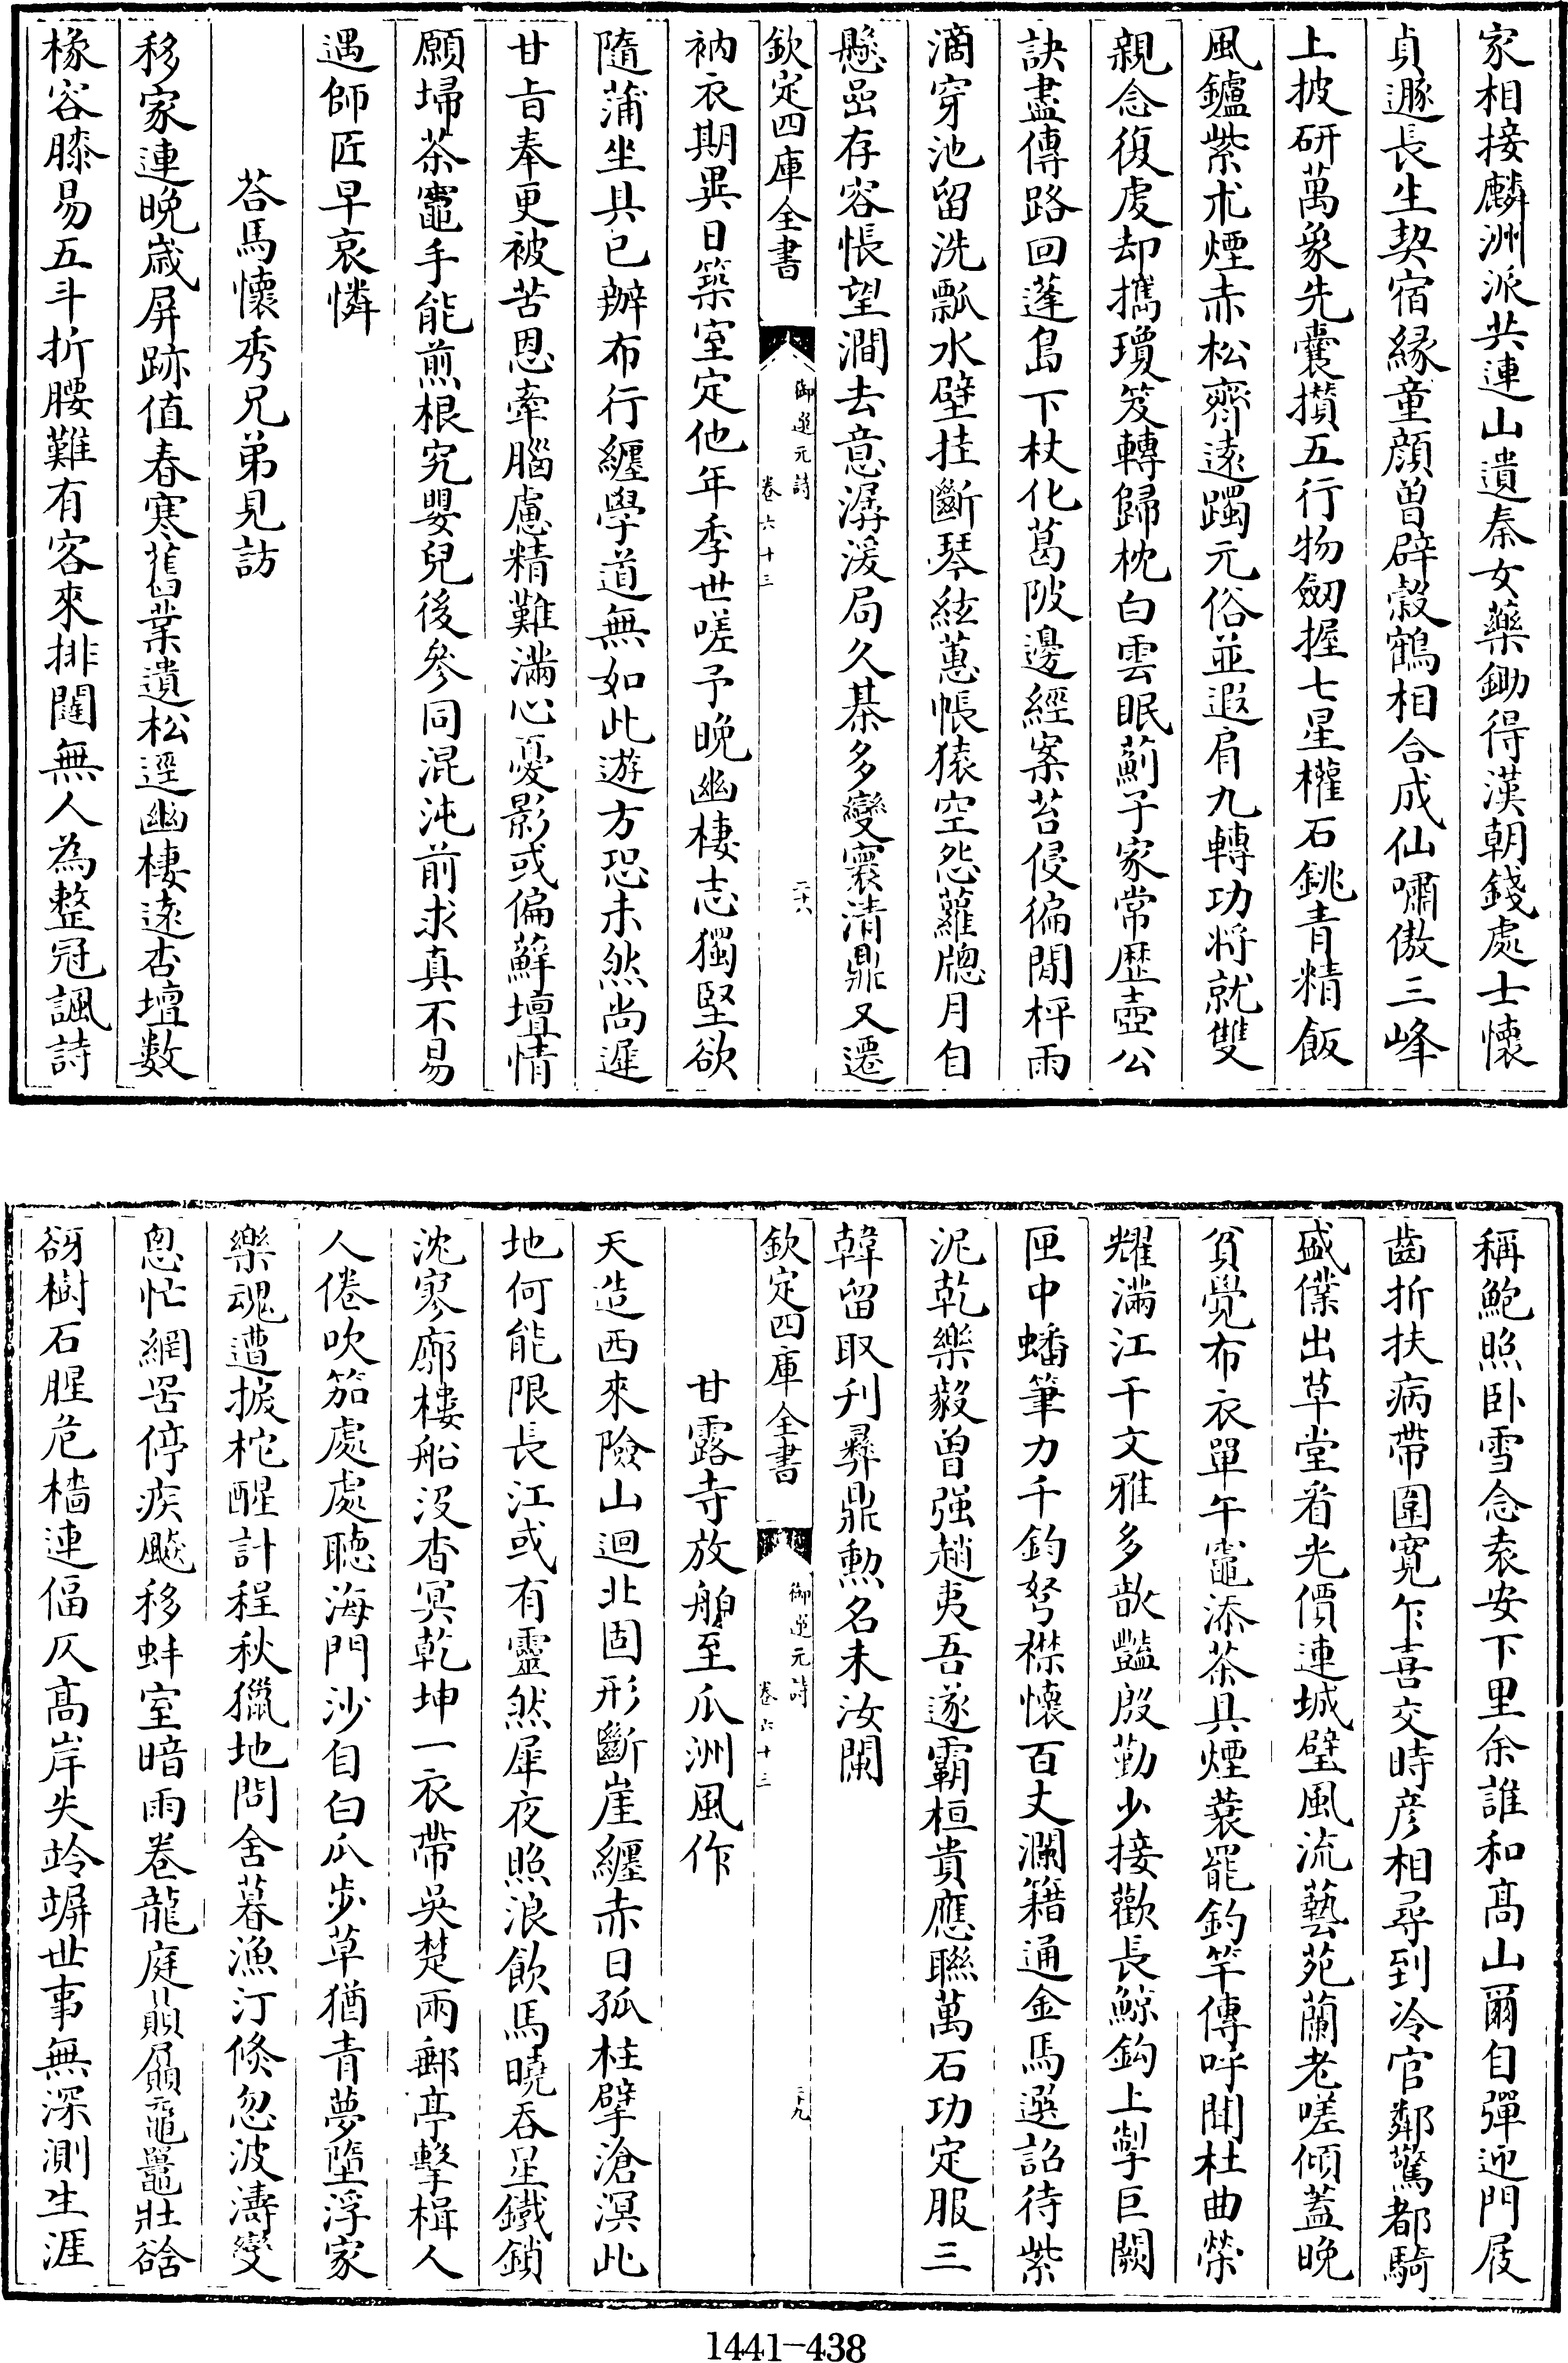 家相接麟洲派共連山遺秦女藥鋤得漢朝錢處士懷
貞遯長生契宿緣童顔曽辟穀鶴相合成仙嘯傲三峰
上披研萬象先囊攅五行物劒握七星權石銚青精飯
風鑪紫朮煙赤松齊遠躅元俗並遐肩九轉功将就雙
親念復虔却攜瓊笈轉歸枕白雲眠薊子家常歴壺公
訣盡傳路回蓬島下杖化葛陂邊經案苔侵徧閒枰雨
滴穿池留洗瓢水壁挂斷琴絃蕙帳猿空怨蘿牕月自
懸嵒存容悵望澗去意潺湲局久棊多變寰清鼎又遷
欽定四庫全書
御選元詩
卷六十三
二十八
衲衣期異日築室定他年季世嗟予晩幽棲志獨堅欲
隨蒲坐具已辦布行纏學道無如此遊方恐未然尚遲
甘㫖奉更被苦恩牽腦慮精難滿心憂影或偏蘚壇情
願埽茶竈手能煎根究嬰兒後參同混沌前求真不易
遇師匠早哀憐
荅馬懷秀兄弟見訪
移家連晩嵗屏跡值春寒舊業遺松逕幽棲遠杏壇數
椽容膝易五斗折腰難有客來排闥無人為整冠諷詩
稱鮑照卧雪念袁安下里余誰和髙山爾自彈迎門屐
齒折扶病帶圍寛乍喜交時彦相尋到冷官鄰驚都騎
盛僕出草堂看光價連城璧風流藝苑蘭老嗟傾蓋晩
貧覺布衣單午竈添茶具煙蓑罷釣竿傳呼聞杜曲榮
耀滿江干文雅多歆豔殷勤少接歡長鯨鈎上掣巨闕
匣中蟠筆力千鈞弩襟懷百丈瀾籍通金馬選詔待紫
泥乾樂毅曽强趙夷吾遂霸桓貴應聯萬石功定服三
韓留取刋彞鼎勲名未汝闌
欽定四庫全書
御選元詩
卷六十三
二十九
甘露寺放船至瓜洲風作
天造西來險山迴北固形斷崖纏赤日孤柱擘滄溟此
地何能限長江或有靈然犀夜照浪飲馬曉吞星鐵鎖
沈寥廓樓船沒杳冥乾坤一衣帶吳楚兩郵亭擊楫人
人倦吹笳處處聽海門沙自白瓜步草猶青夢墮浮家
樂魂遭捩柁醒計程秋獵地問舍暮漁汀倐忽波濤變
怱忙網罟停疾飈移蚌室暗雨卷龍庭贔屭黿鼉壯谽
谺樹石腥危檣連偪仄髙岸失竛竮世事無深測生涯
1441-438